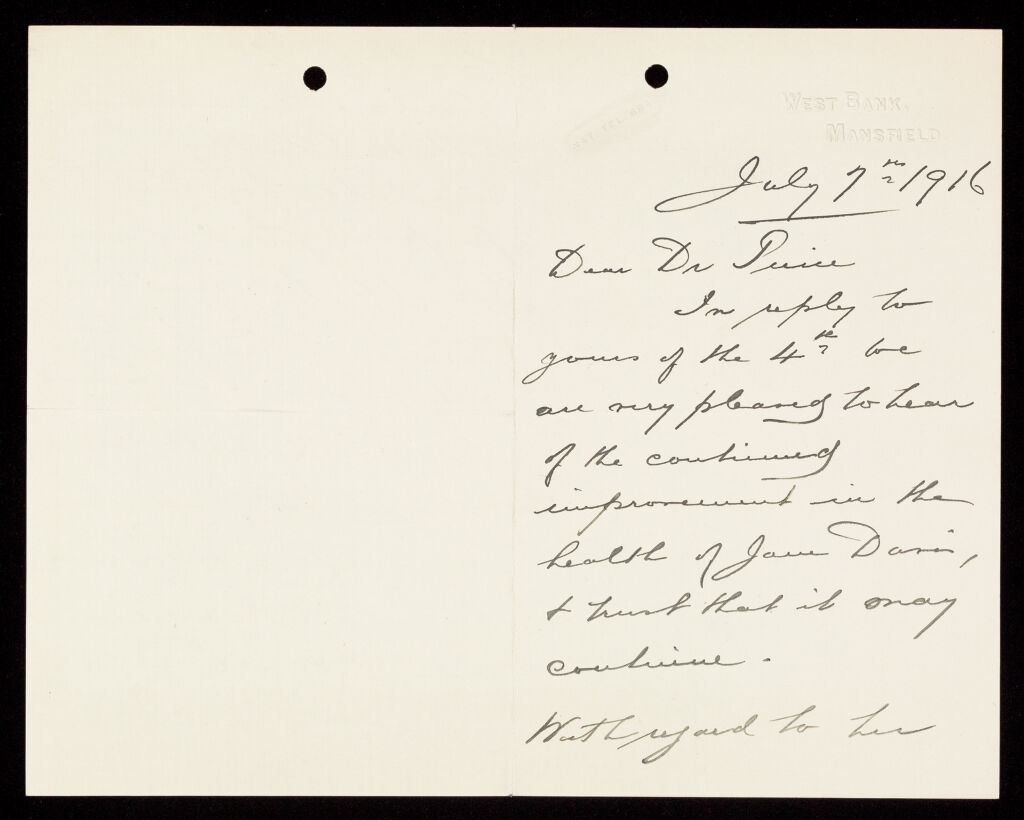 WEST BANK,
MANSFIELD.
July 7th 1916
Dear Dr
In reply to
yours of the 4th we
are very pleased to hear
of the continued
improvement in the
health of Jane Davis,
& trust that it may
continue.
With regard to her